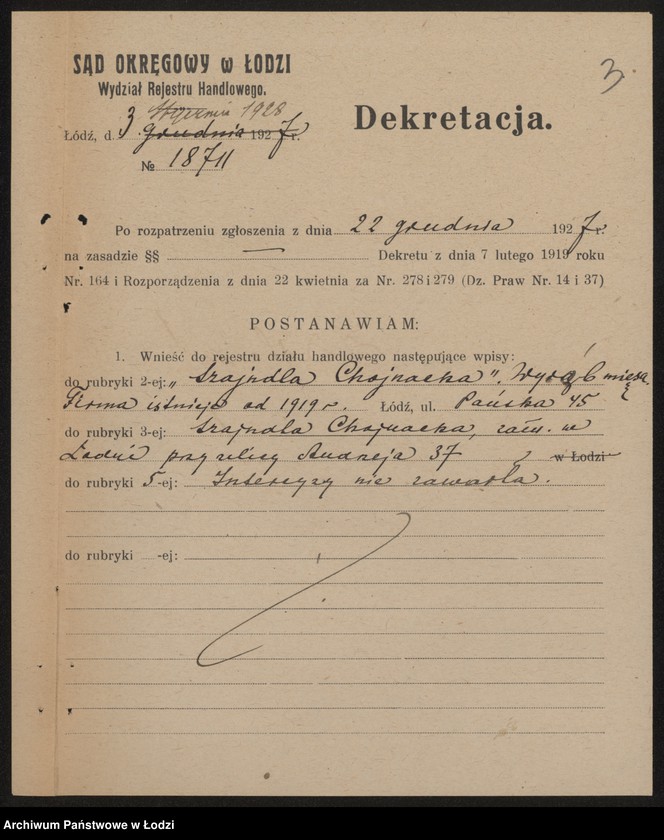 SĄD OKRĘGOWY w ŁODZI
Wydział Rejestru Handlowego.
3.
stycznia 1928
Łódź, d. 3 grudnia 1927 r.
№ 18711
Dekretacja.
Po rozpatrzeniu zgłoszenia z dnia 22 grudnia 1927 r.
na zasadzie §§ — Dekretu z dnia 7 lutego 1919 roku
Nr. 164 i Rozporządzenia z dnia 22 kwietnia za Nr. 278 i 279 (Dz. Praw Nr. 14 i 37)
POSTANAWIAM:
1. Wnieść do rejestru działu handlowego następujące wpisy:
do rubryki 2-ej: „Szajndla Chojnacka". Wyrąb mięsa.
Firma istnieje od 1919 r. Łódź, ul. Pańska 45
do rubryki 3-ej: Szajndla Chojnacka, zam. w
Łodzi przy ulicy Andrzeja 37 w Łodzi
do rubryki 5-ej: Intercyzy nie zawarła.
do rubryki -ej:
Archiwum Państwowe w Łodzi